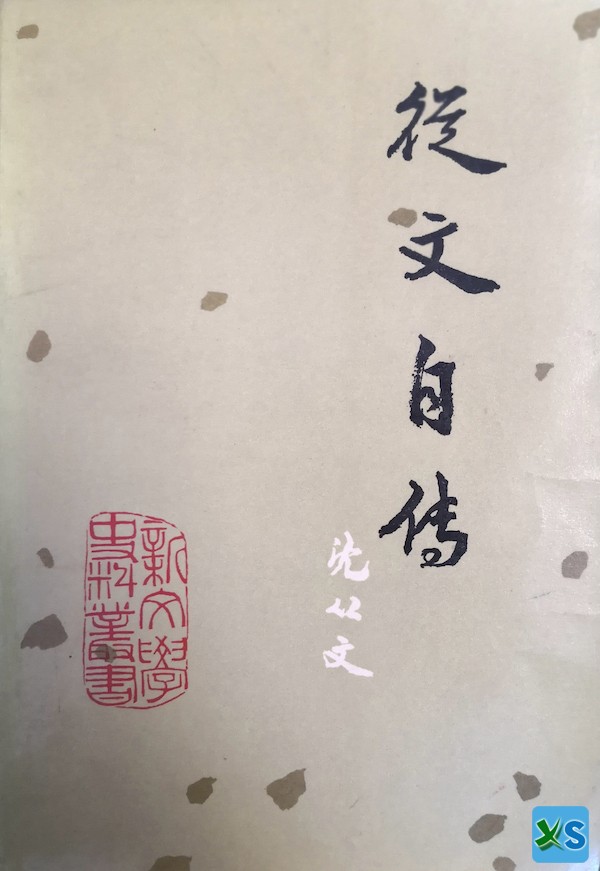 從文自传
沈从文
新文學
史料叢書
XS